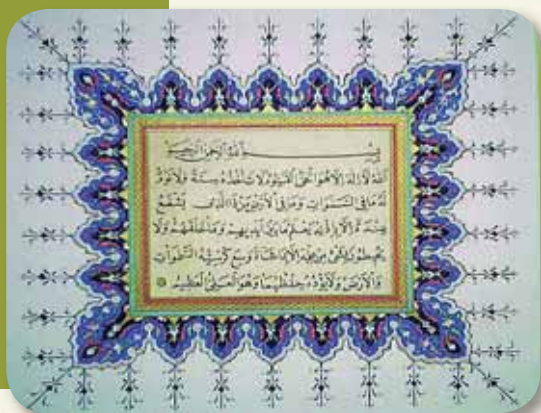 بِسْمِ اللهِ الرَّحْمٰنِ الرَّحِيمِ
اَللهُ لَا اِلٰهَ اِلَّا هُوَ الْحَيُّ الْقَيُّومُ لَا تَأْخُذُهُ سِنَةٌ وَلَا نَوْمٌ
لَهُ مَا فِي السَّمٰوَاتِ وَمَا فِي الْاَرْضِ مَنْ ذَا الَّذِي يَشْفَعُ
عِنْدَهُ اِلَّا بِاِذْنِهِ يَعْلَمُ مَا بَيْنَ اَيْدِيهِمْ وَمَا خَلْفَهُمْ وَلَا
يُحِيطُونَ بِشَيْءٍ مِنْ عِلْمِهِ اِلَّا بِمَا شَاءَ وَسِعَ كُرْسِيُّهُ السَّمٰوَاتِ
وَالْاَرْضَ وَلَا يَؤُدُهُ حِفْظُهُمَا وَهُوَ الْعَلِيُّ الْعَظِيمُ